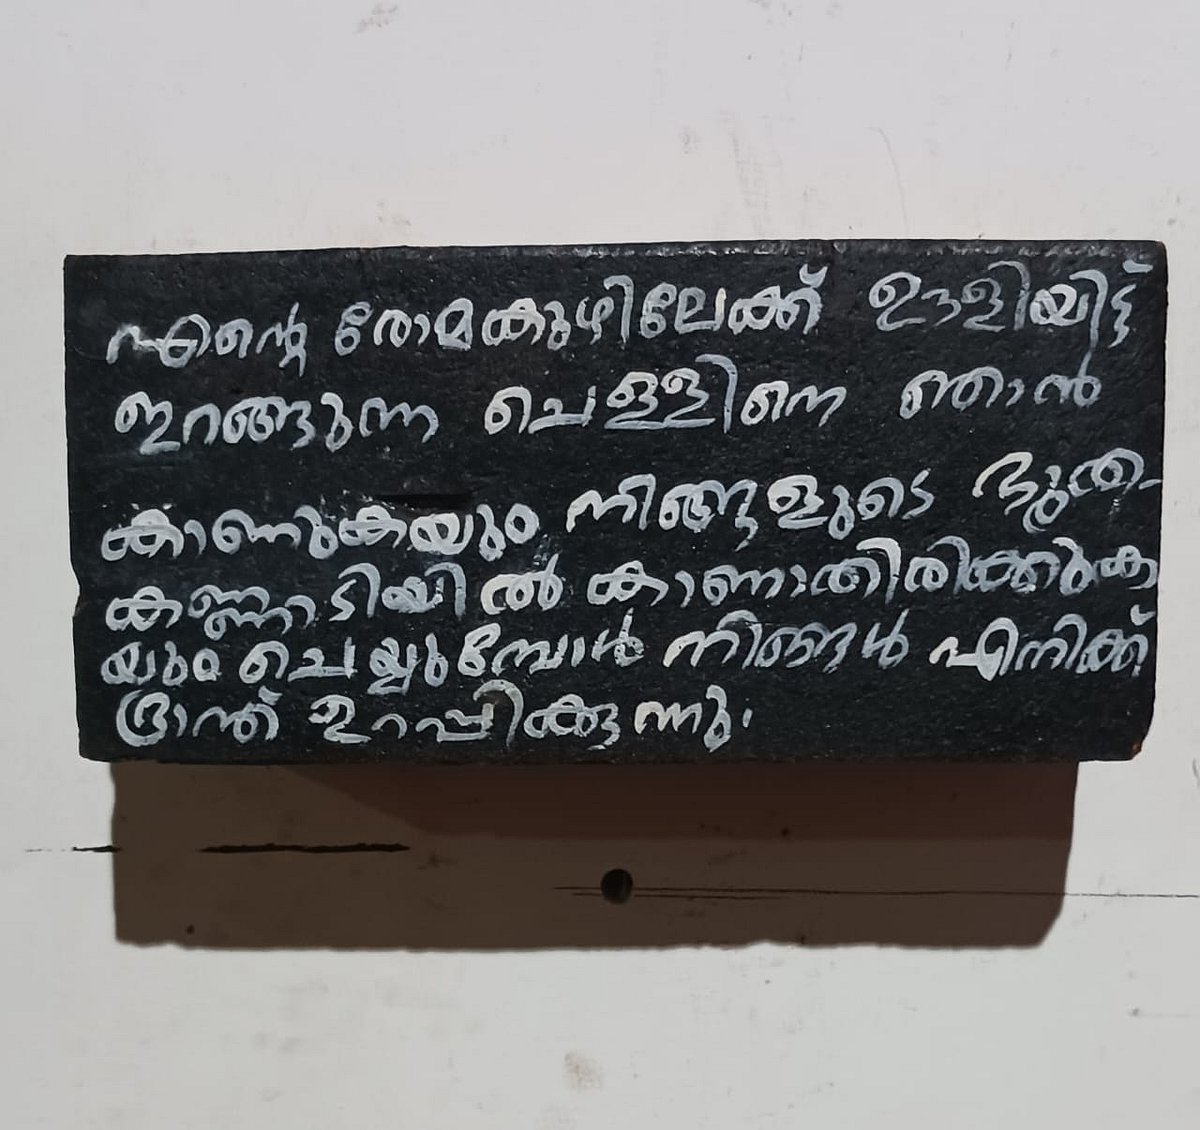 എന്റെ രോമകുഴിലേക്ക് ഊളിയിട്ട്
ഇറങ്ങുന്ന ചെള്ളിനെ ഞാൻ
കാണുകയും നിങ്ങളുടെ ഭൂത-
കണ്ണാടിയിൽ കാണാതിരിക്കുക
യും ചെയ്യുമ്പോൾ നിങ്ങൾ എനിക്ക്
ഭ്രാന്ത് ഉറപ്പിക്കുന്നു.